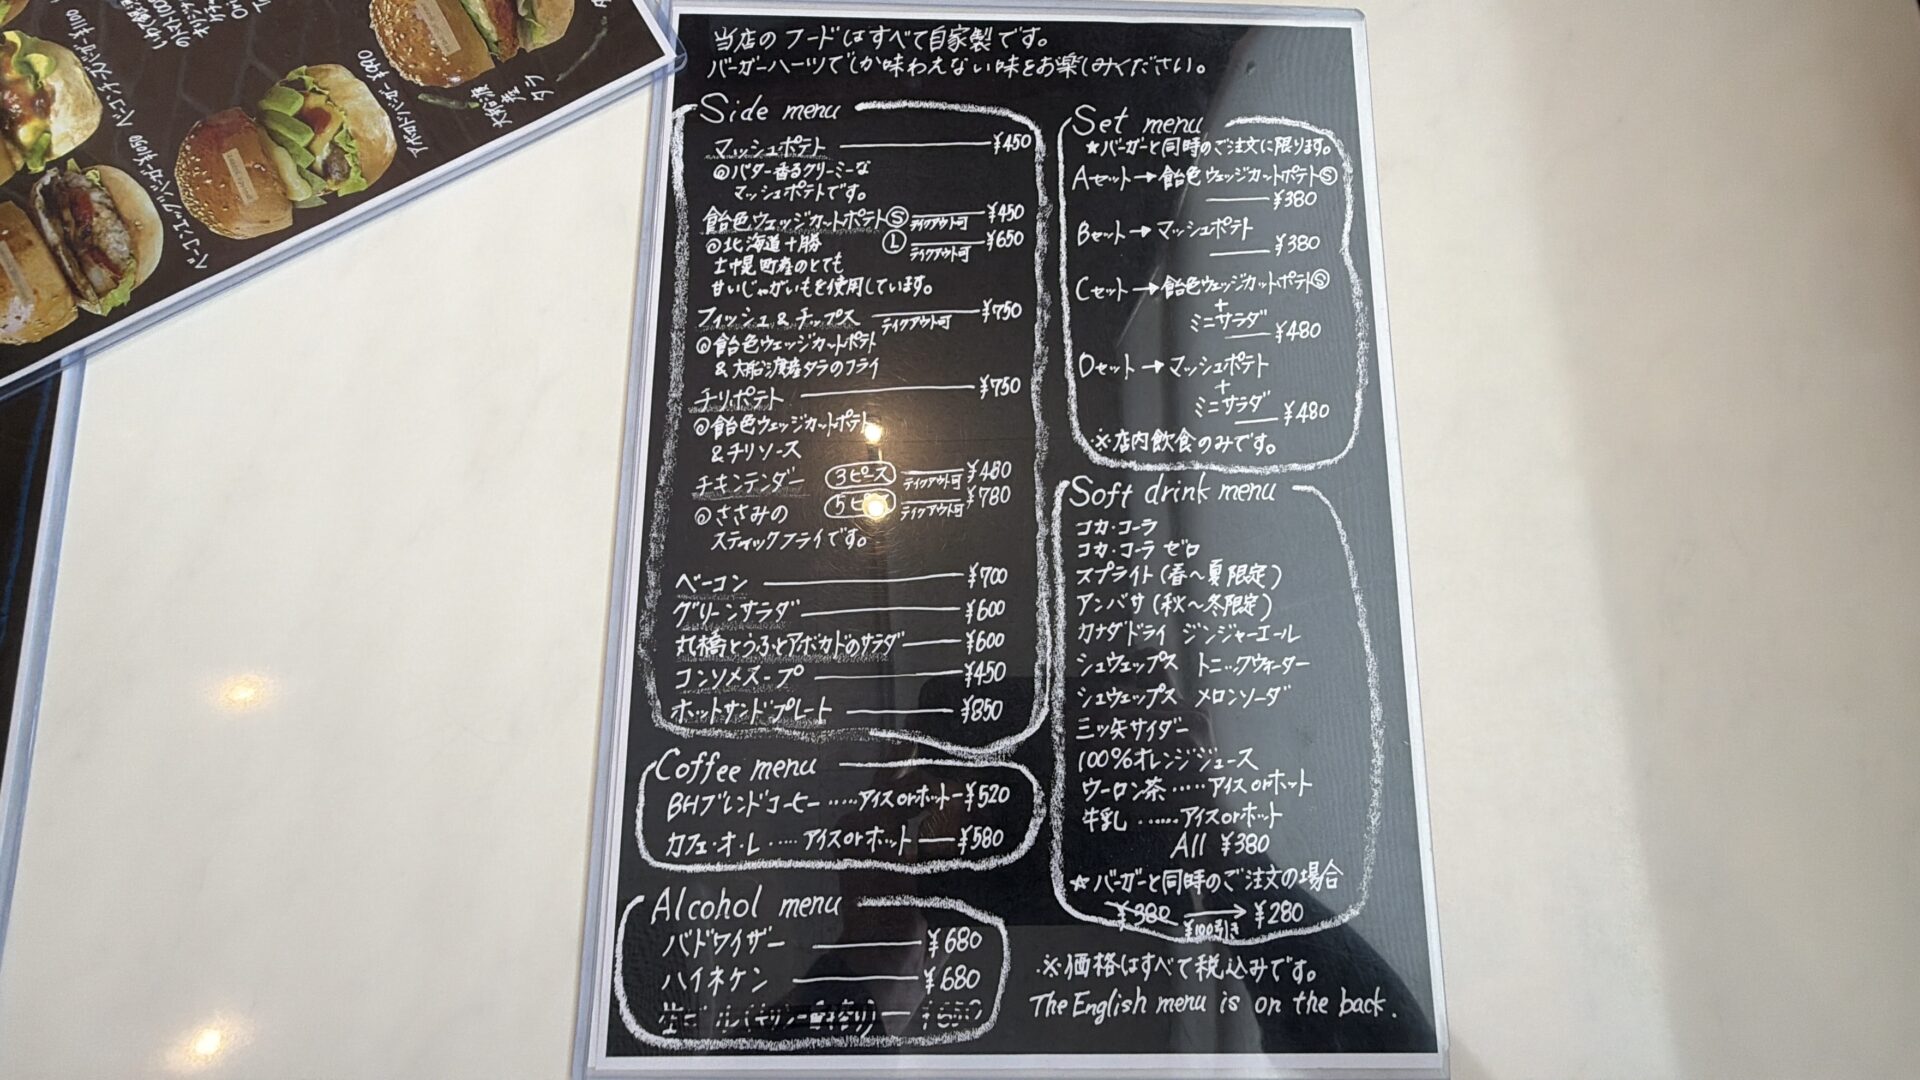 ベーコンチーズバーガー¥1100
ベーコンエッグバーガー¥1050
アボカドバーガー¥990
大船渡
当店のフードはすべて自家製です。
バーガーハーツでしか味わえない味をお楽しみください。
Side menu
マッシュポテト ¥450
◎バター香るクリーミーな
マッシュポテトです。
飴色ウェッジカットポテト Ⓢ テイクアウト可 ¥450
Ⓛ テイクアウト可 ¥650
◎北海道十勝
士幌町産のとても
甘いじゃがいもを使用しています。
フィッシュ&チップス テイクアウト可 ¥750
◎飴色ウェッジカットポテト
&大船渡産タラのフライ
チリポテト ¥750
◎飴色ウェッジカットポテト
&チリソース
チキンテンダー 3ピース テイクアウト可 ¥480
5ピース テイクアウト可 ¥780
◎ささみの
スティックフライです。
ベーコン ¥700
グリーンサラダ ¥600
丸橋とうふとアボカドのサラダ ¥600
コンソメスープ ¥450
ホットサンドプレート ¥850
Coffee menu
BHブレンドコーヒー……アイスorホット ¥520
カフェ・オ・レ……アイスorホット ¥580
Alcohol menu
バドワイザー ¥680
ハイネケン ¥680
Set menu
☆バーガーと同時のご注文に限ります。
Aセット→飴色ウェッジカットポテトⓈ
¥380
Bセット→マッシュポテト
¥380
Cセット→飴色ウェッジカットポテトⓈ
+
ミニサラダ ¥480
Dセット→マッシュポテト
+
ミニサラダ ¥480
※店内飲食のみです。
Soft drink menu
コカ・コーラ
コカ・コーラ ゼロ
スプライト(春〜夏限定)
アンバサ(秋〜冬限定)
カナダドライ ジンジャーエール
シュウェップス トニックウォーター
シュウェップス メロンソーダ
三ツ矢サイダー
100%オレンジジュース
ウーロン茶……アイスorホット
牛乳……アイスorホット
All ¥380
☆バーガーと同時のご注文の場合
¥380 → ¥280
¥100引き
※価格はすべて税込みです。
The English menu is on the back.